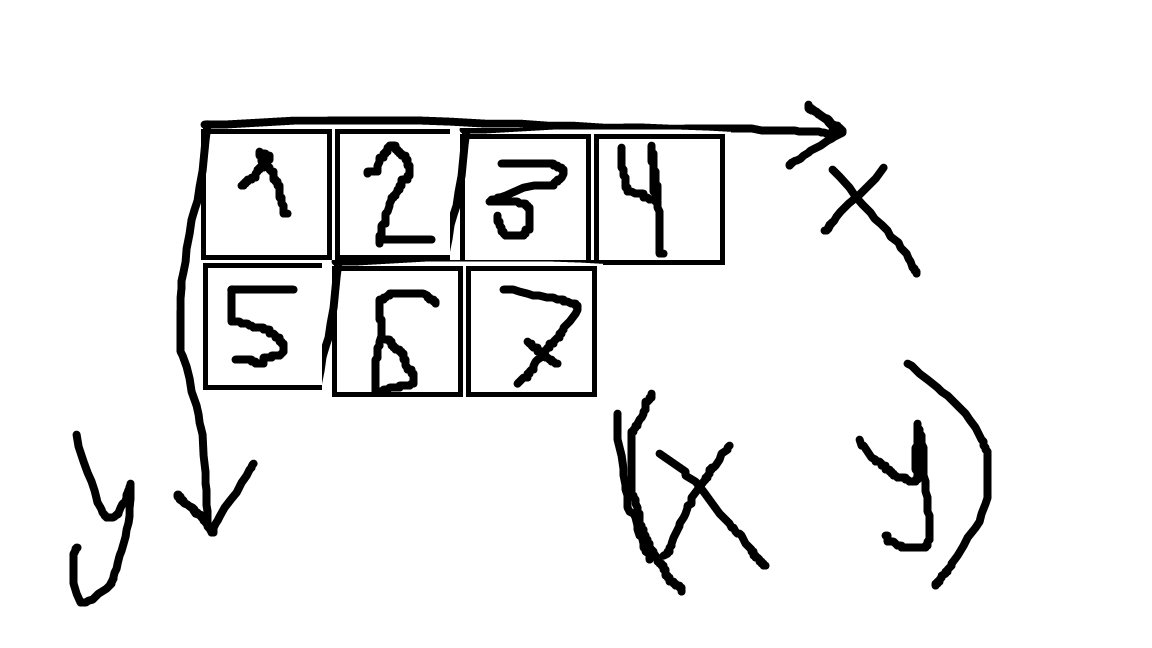 1 2 3 4
x
5 6 7
y
(x y)